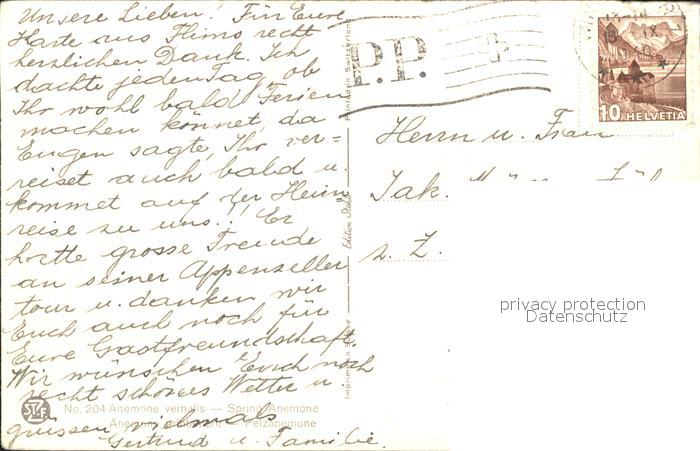 Unsere Lieben! Für Eure
Karte aus Flims recht
herzlichen Dank. Ich
dachte jeden Tag, ob
Ihr wohl bald Ferien
machen könnet, da
Eugen sagte, Ihr ver=
reiset auch bald u.
kommet auf der Heim
reise zu uns.! Er
hatte grosse Freude
an seiner Appenzeller
tour u. danken wir
Euch auch noch für
Eure Gastfreundschaft.
Wir wünschen Euch noch
recht schönes Wetter u.
grüssen vielmals
Gertrud u. Familie.
No. 204 Anemone vernalis — Spring Anemone
Pelzanemone
STF
Printed in Switzerland
Edition
P.P.
10 HELVETIA
Herrn u. Frau
Jak.
z. Z.
privacy protection
Datenschutz